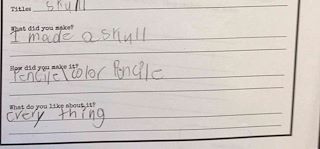 Title: Skull
What did you make?
I made a skull
How did you make it?
Pencile\color Pencile
What do you like about it?
every thing